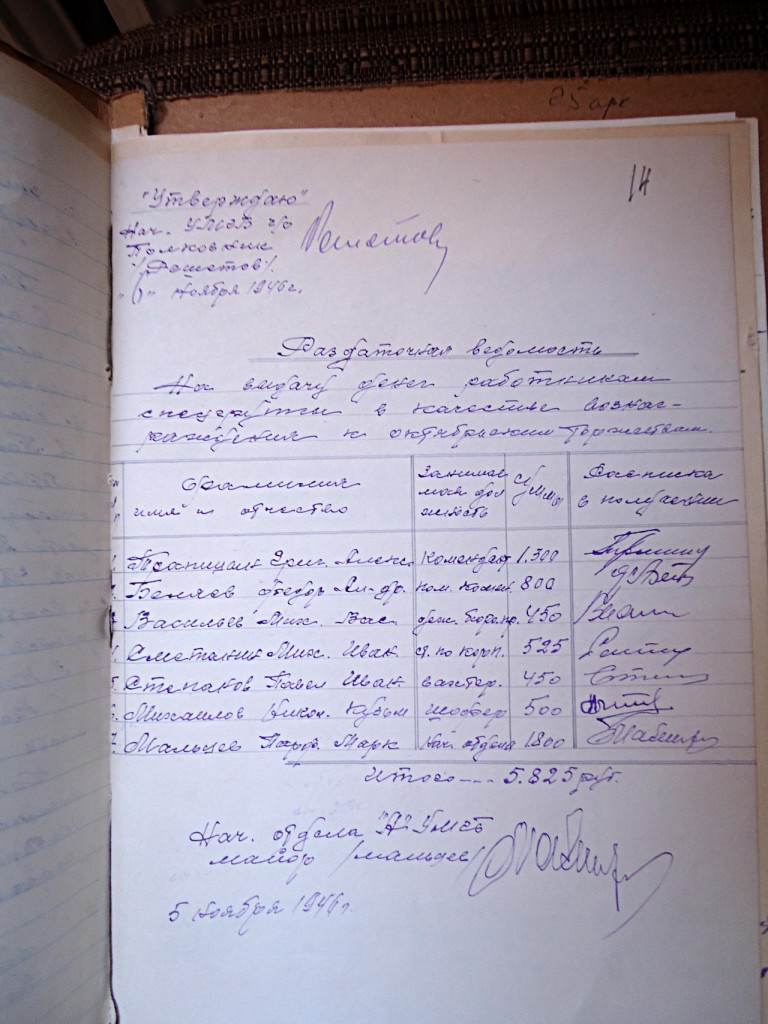 25 арк
14
"Утверждаю"
Нач. УМГБ ч/о
Полковник
/Решетов/.
" " Ноября 1946 г.
Раздаточная ведомость
На выдачу денег работникам
спецгруппы в качестве вознаг-
раждения к октябрьским торжествам.
Фамилия имя и отчество
Занимаемая должность
Сумма
Расписка в получении
Григ. Алекс. Комендант 1.300
Беляев Федор Ал-др. пом. комен. 800
Васильев Мих. Вас. деж. бюро пр. 450
Сметанин Мих. Иван. ст. по корп. 525
Степанов Павел Иван. вахтер. 450
Михайлов Никол. Кузьм шоффер 500
Мальцев Парф. Марк Нач. отдела 1800
Итого --- 5.825 руб.
Нач. отдела "А" УМГБ
майор /мальцев/
5 Ноября 1946 г.